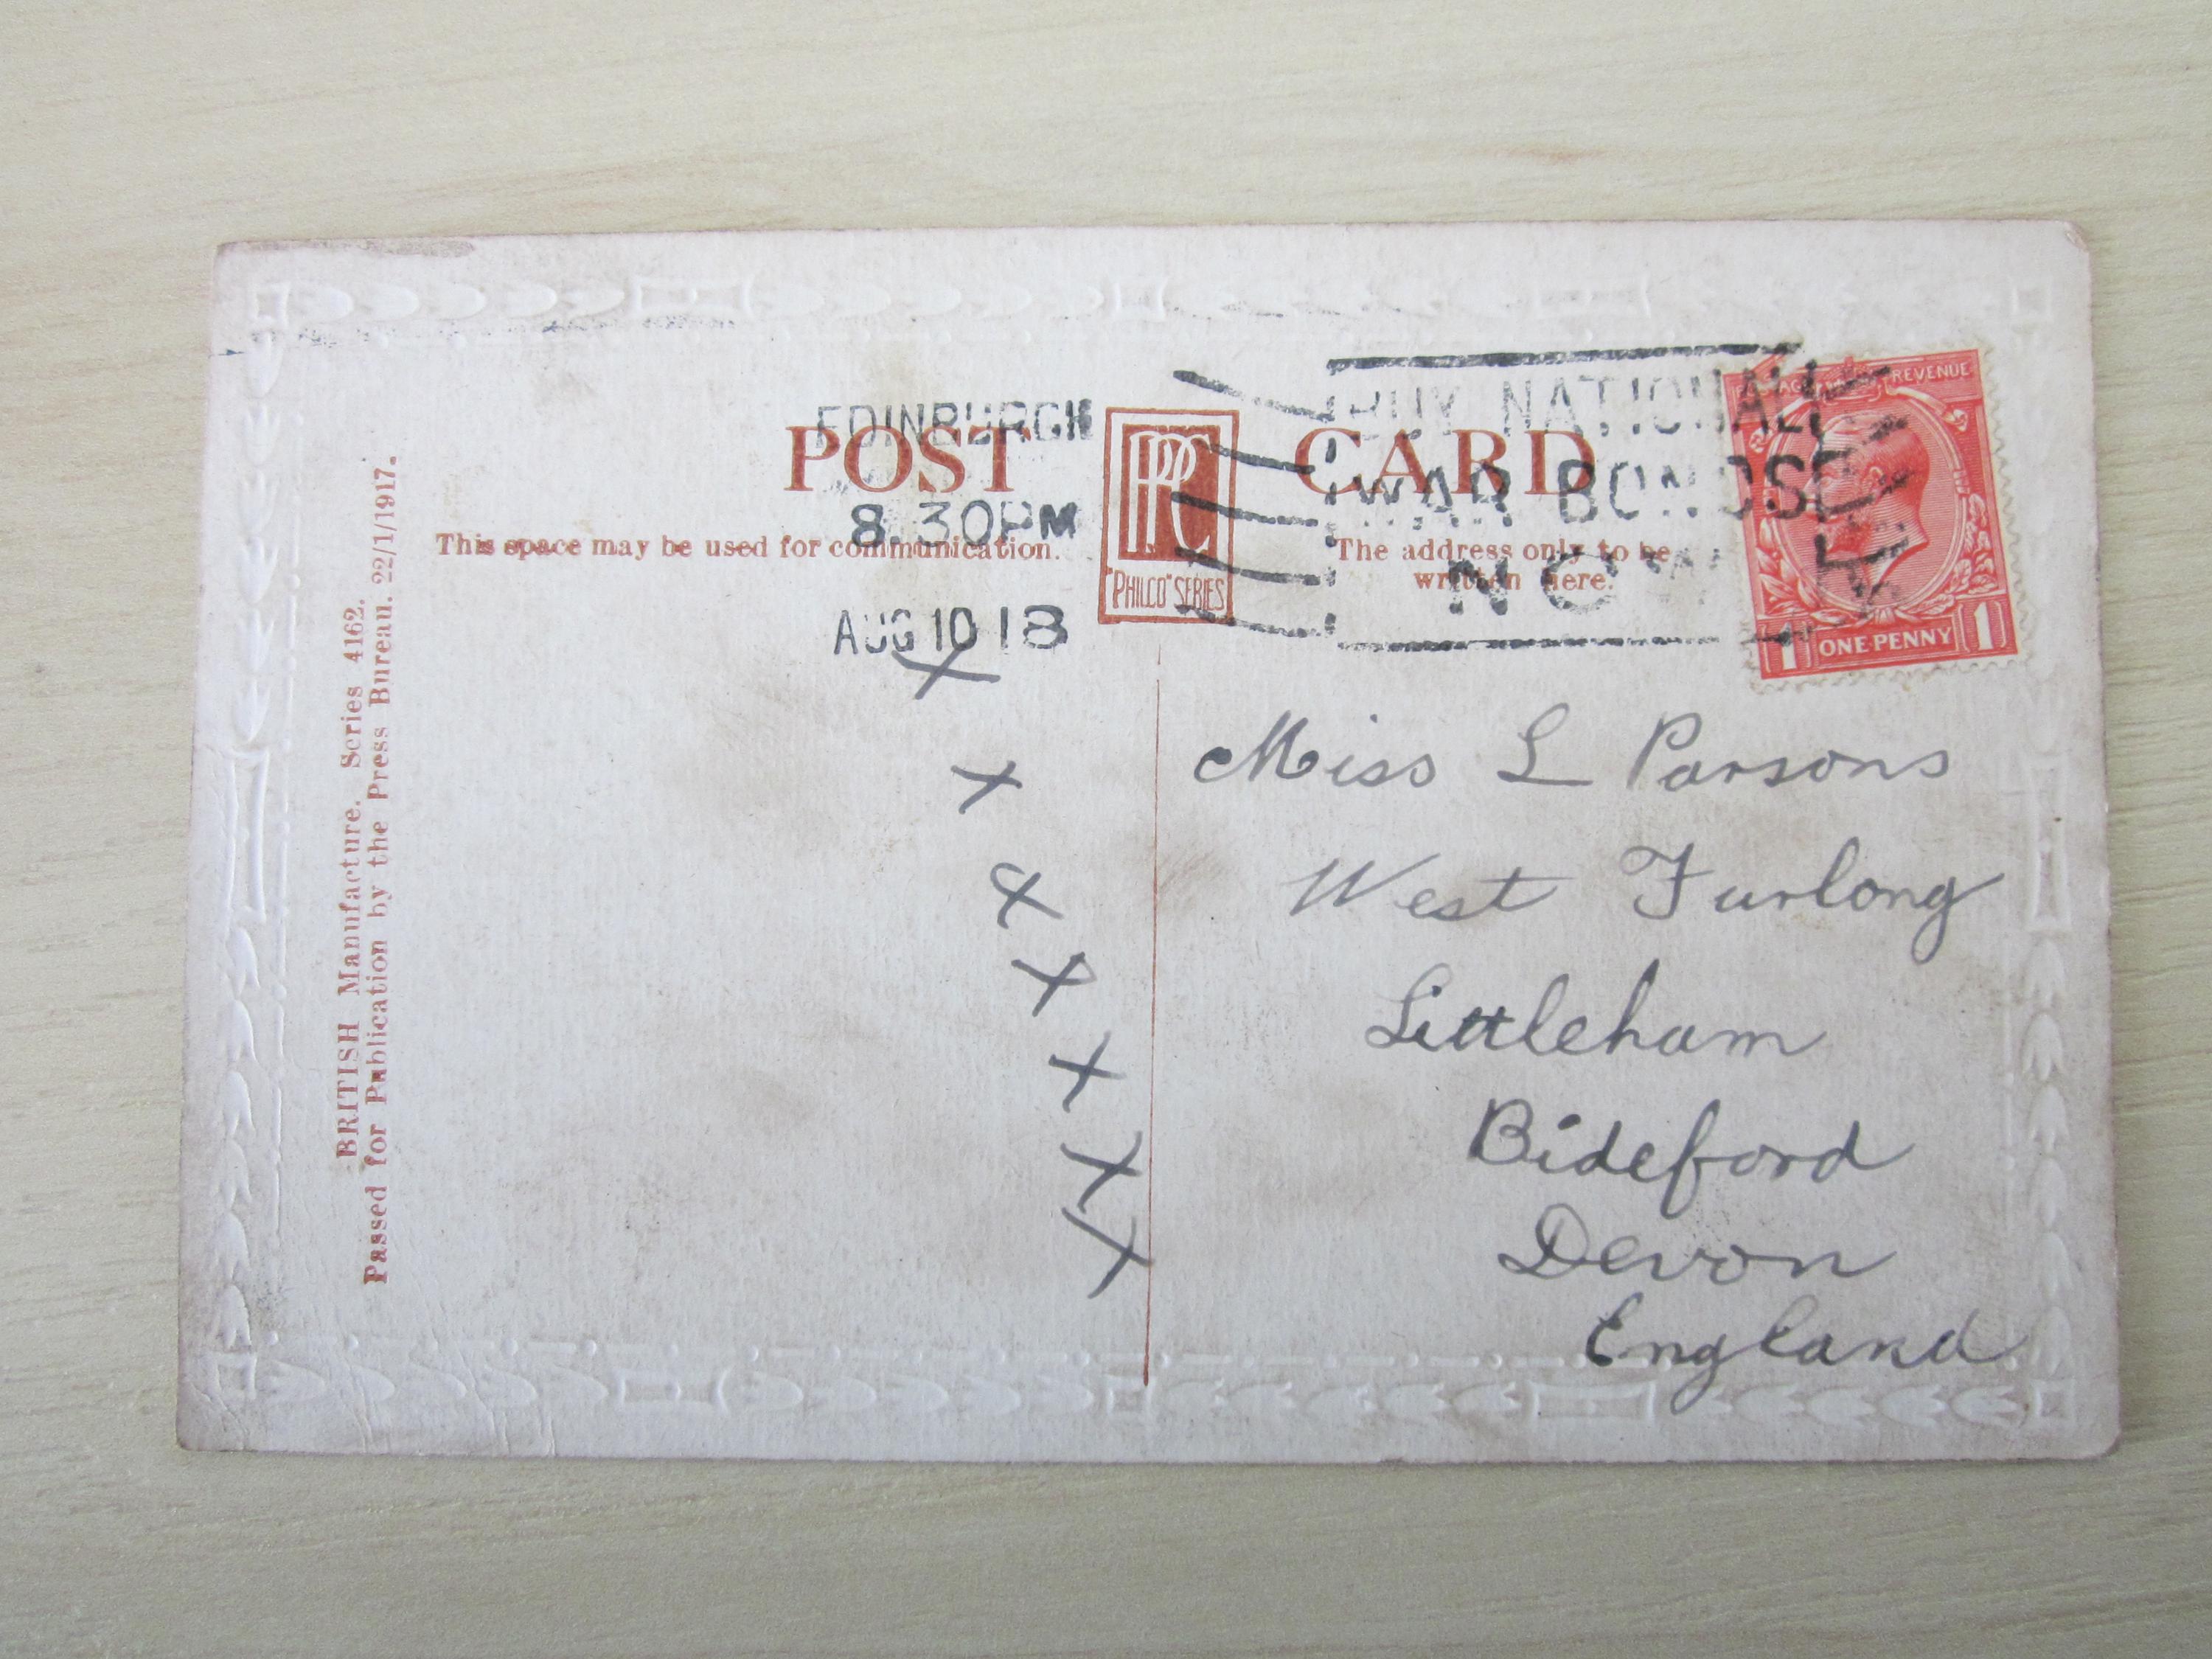 POST CARD
EDINBURGH
8.30PM
AUG 10 18
BUY NATIONAL
WAR BONDS
NOW
PPC
"PHILCO" SERIES
This space may be used for communication.
The address only to be
written here.
REVENUE
1 ONE PENNY 1
BRITISH Manufacture. Series 4162.
Passed for Publication by the Press Bureau. 22/1/1917.
X
X
X
X
X
X
X
Miss L Parsons
West Furlong
Littleham
Bideford
Devon
England